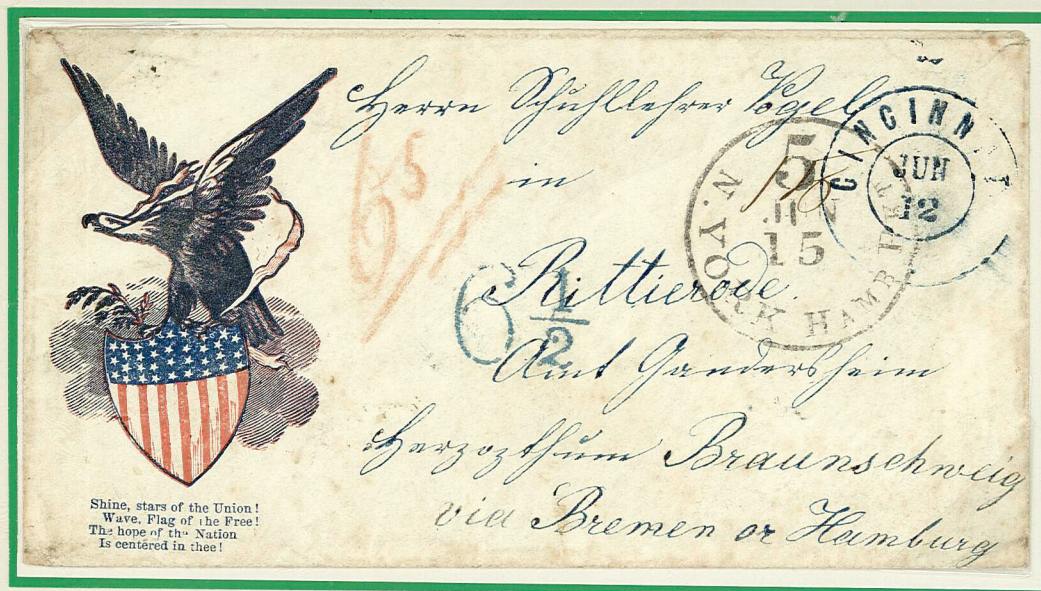 Herrn Schuhllehrer Vogel
in
Rittierode.
Amt Gandersheim
Herzogthum Braunschweig
via Bremen or Hamburg
CINCINN
JUN
12
N. YORK HAMB
5
JUN
15
6 1/2
Shine, stars of the Union!
Wave, Flag of the Free!
The hope of the Nation
Is centered in thee!